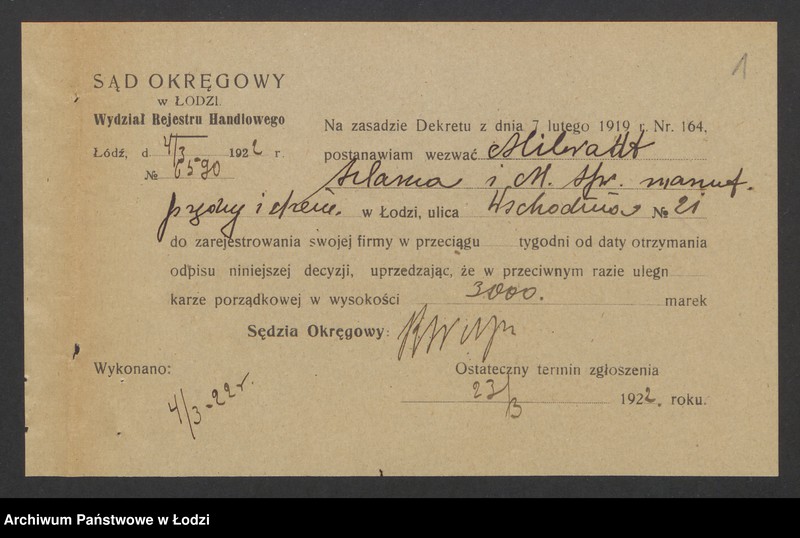 1
SĄD OKRĘGOWY
w ŁODZI.
Wydział Rejestru Handlowego
Łódź, d 4/3 1922 r
№ 6590
Na zasadzie Dekretu z dnia 7 lutego 1919 r. Nr. 164,
postanawiam wezwać Milbradt
i M. Spr. manuf.
i w Łodzi, ulica Wschodnia № 21
do zarejestrowania swojej firmy w przeciągu tygodni od daty otrzymania
odpisu niniejszej decyzji, uprzedzając, że w przeciwnym razie ulegn
karze porządkowej w wysokości 3000. marek
Sędzia Okręgowy:
Wykonano:
4/3-22 r.
Ostateczny termin zgłoszenia
23/3 1922. roku.
Archiwum Państwowe w Łodzi